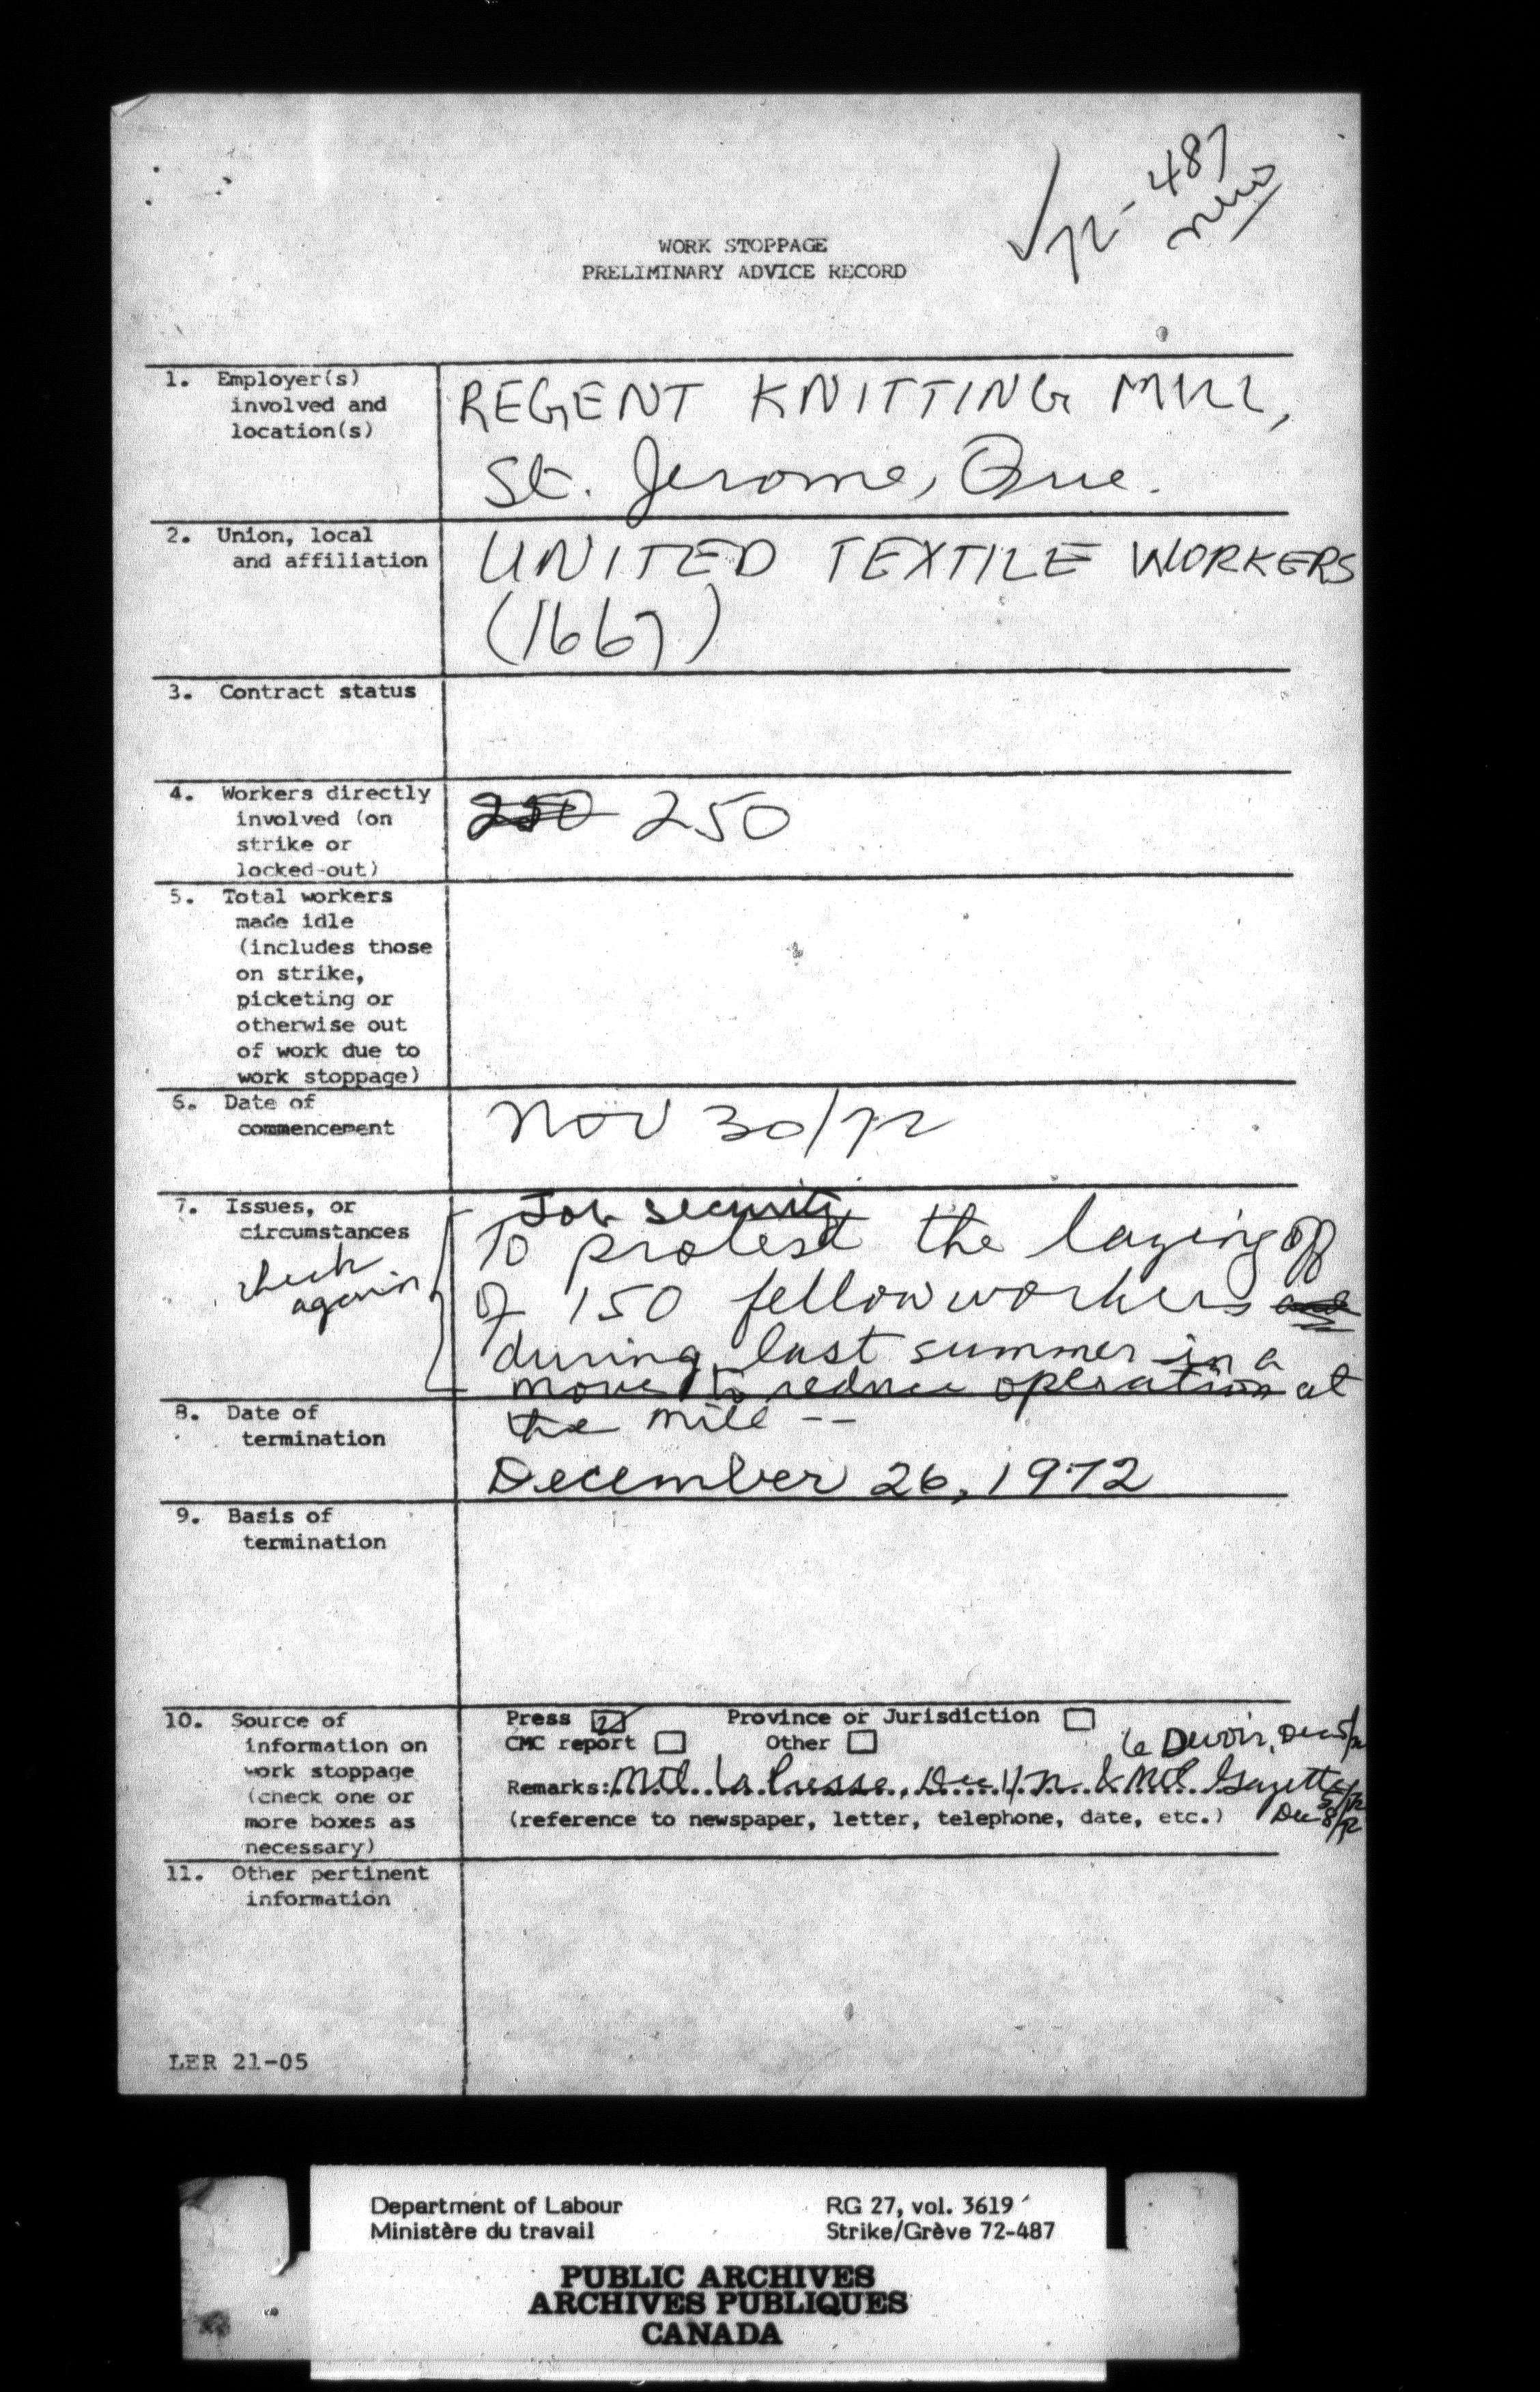 72-487
WORK STOPPAGE
PRELIMINARY ADVICE RECORD
1. Employer(s)
involved and
location(s)
REGENT KNITTING MILL,
St. Jerome, Que.
2. Union, local
and affiliation
UNITED TEXTILE WORKERS
(1667)
3. Contract status
4. Workers directly
involved (on
strike or
locked-out)
250 250
5. Total workers
made idle
(includes those
on strike,
picketing or
otherwise out
of work due to
work stoppage)
6. Date of
commencement
Nov 30/72
7. Issues, or
circumstances
check
again
Job security
To protest the laying off
of 150 fellow workers
during last summer in a
move to reduce operation at
the mill --
8. Date of
termination
December 26, 1972
9. Basis of
termination
10. Source of
information on
work stoppage
(check one or
more boxes as
necessary)
Press Province or Jurisdiction
CMC report Other
Le Devoir, Dec 5/72
Remarks: Mtl. La Presse, Dec 1/72 & Mtl Gazette
Dec 8/72
(reference to newspaper, letter, telephone, date, etc.)
11. Other pertinent
information
LER 21-05
Department of Labour
Ministère du travail
RG 27, vol. 3619
Strike/Grève 72-487
PUBLIC ARCHIVES
ARCHIVES PUBLIQUES
CANADA